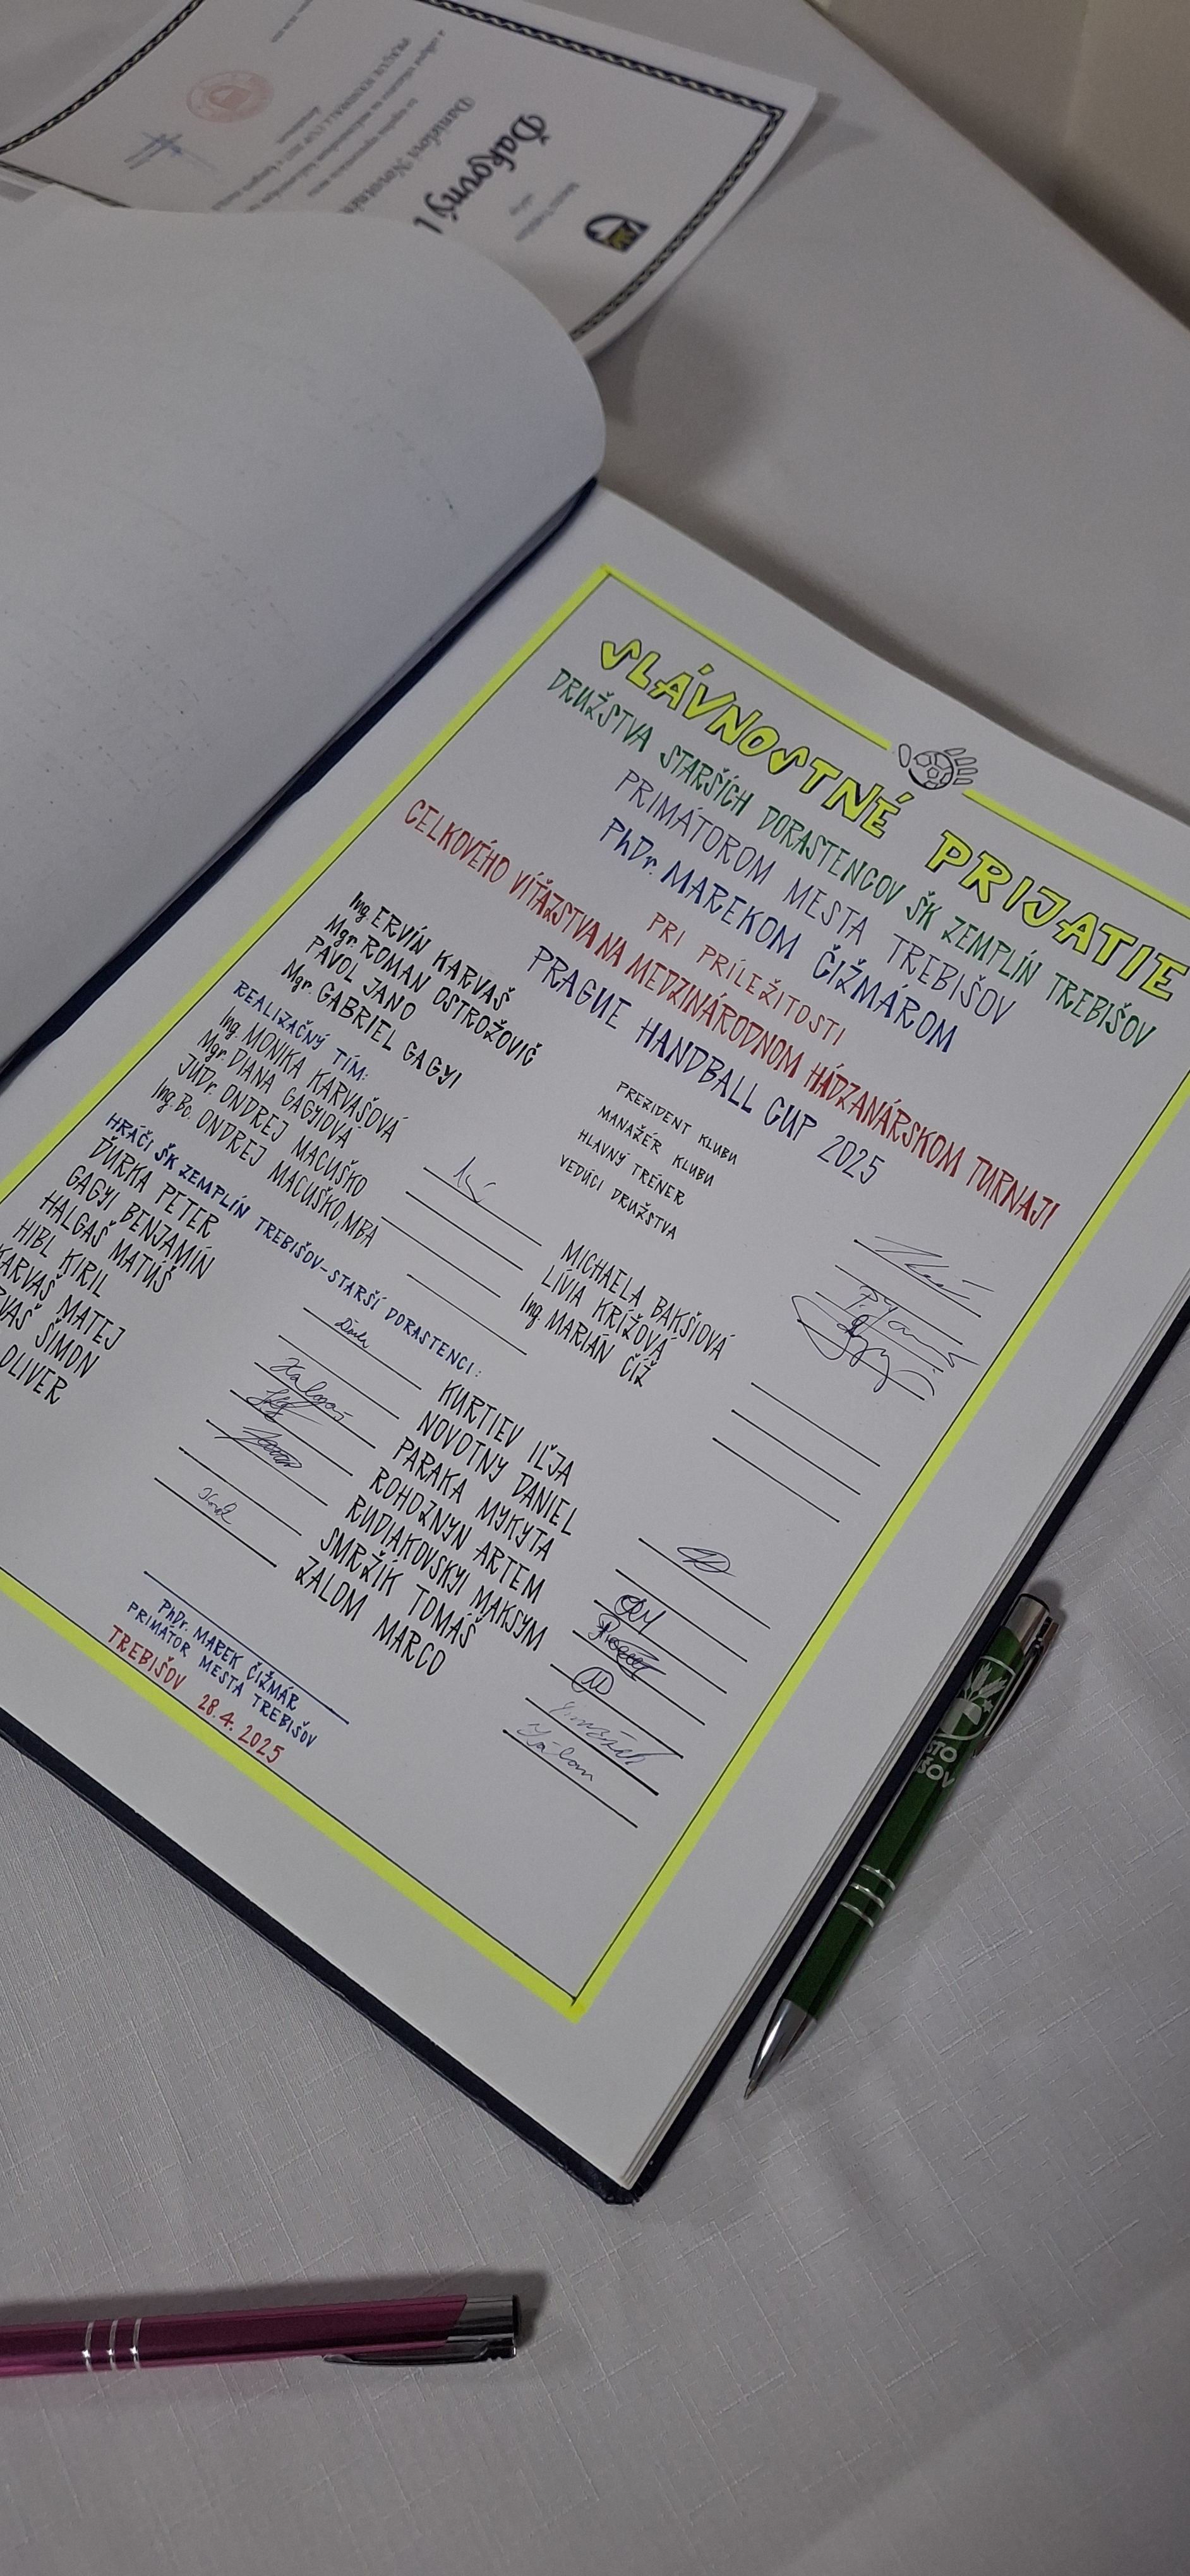 Ďakovný l
Danielovi Novotné
SLÁVNOSTNÉ PRIJATIE
DRUŽSTVA STARŠÍCH DORASTENCOV ŠK ZEMPLÍN TREBIŠOV
PRIMÁTOROM MESTA TREBIŠOV
PhDr. MAREKOM ČIŽMÁROM
PRI PRÍLEŽITOSTI
CELKOVÉHO VÍŤAZSTVA NA MEDZINÁRODNOM HÁDZANÁRSKOM TURNAJI
PRAGUE HANDBALL CUP 2025
Ing. ERVÍN KARVAŠ PREZIDENT KLUBU
Mgr. ROMAN OSTROŽOVIČ MANAŽÉR KLUBU
PAVOL JANO HLAVNÝ TRÉNER
Mgr. GABRIEL GAGYI VEDÚCI DRUŽSTVA
REALIZAČNÝ TÍM:
Ing. MONIKA KARVAŠOVÁ MICHAELA BAKŠIOVÁ
Mgr. DIANA GAGYIOVÁ LÍVIA KRÍŽOVÁ
JUDr. ONDREJ MACUŠKO Ing. MARIÁN ČÍŽ
Ing. Bc. ONDREJ MACUŠKO, MBA
HRÁČI ŠK ZEMPLÍN TREBIŠOV-STARŠÍ DORASTENCI:
ĎURKA PETER KURTIEV IĽJA
GAGYI BENJAMÍN NOVOTNÝ DANIEL
HALGAŠ MATÚŠ PARAKA MYKYTA
HIBL KIRIL ROHOZNYN ARTEM
KARVAŠ MATEJ RUDIAKOVSKYI MAKSYM
VAŠ ŠIMON SMRŽÍK TOMÁŠ
OLIVER ZALOM MARCO
PhDr. MAREK ČIŽMÁR
PRIMÁTOR MESTA TREBIŠOV
TREBIŠOV 28.4.2025
STO
IŠOV